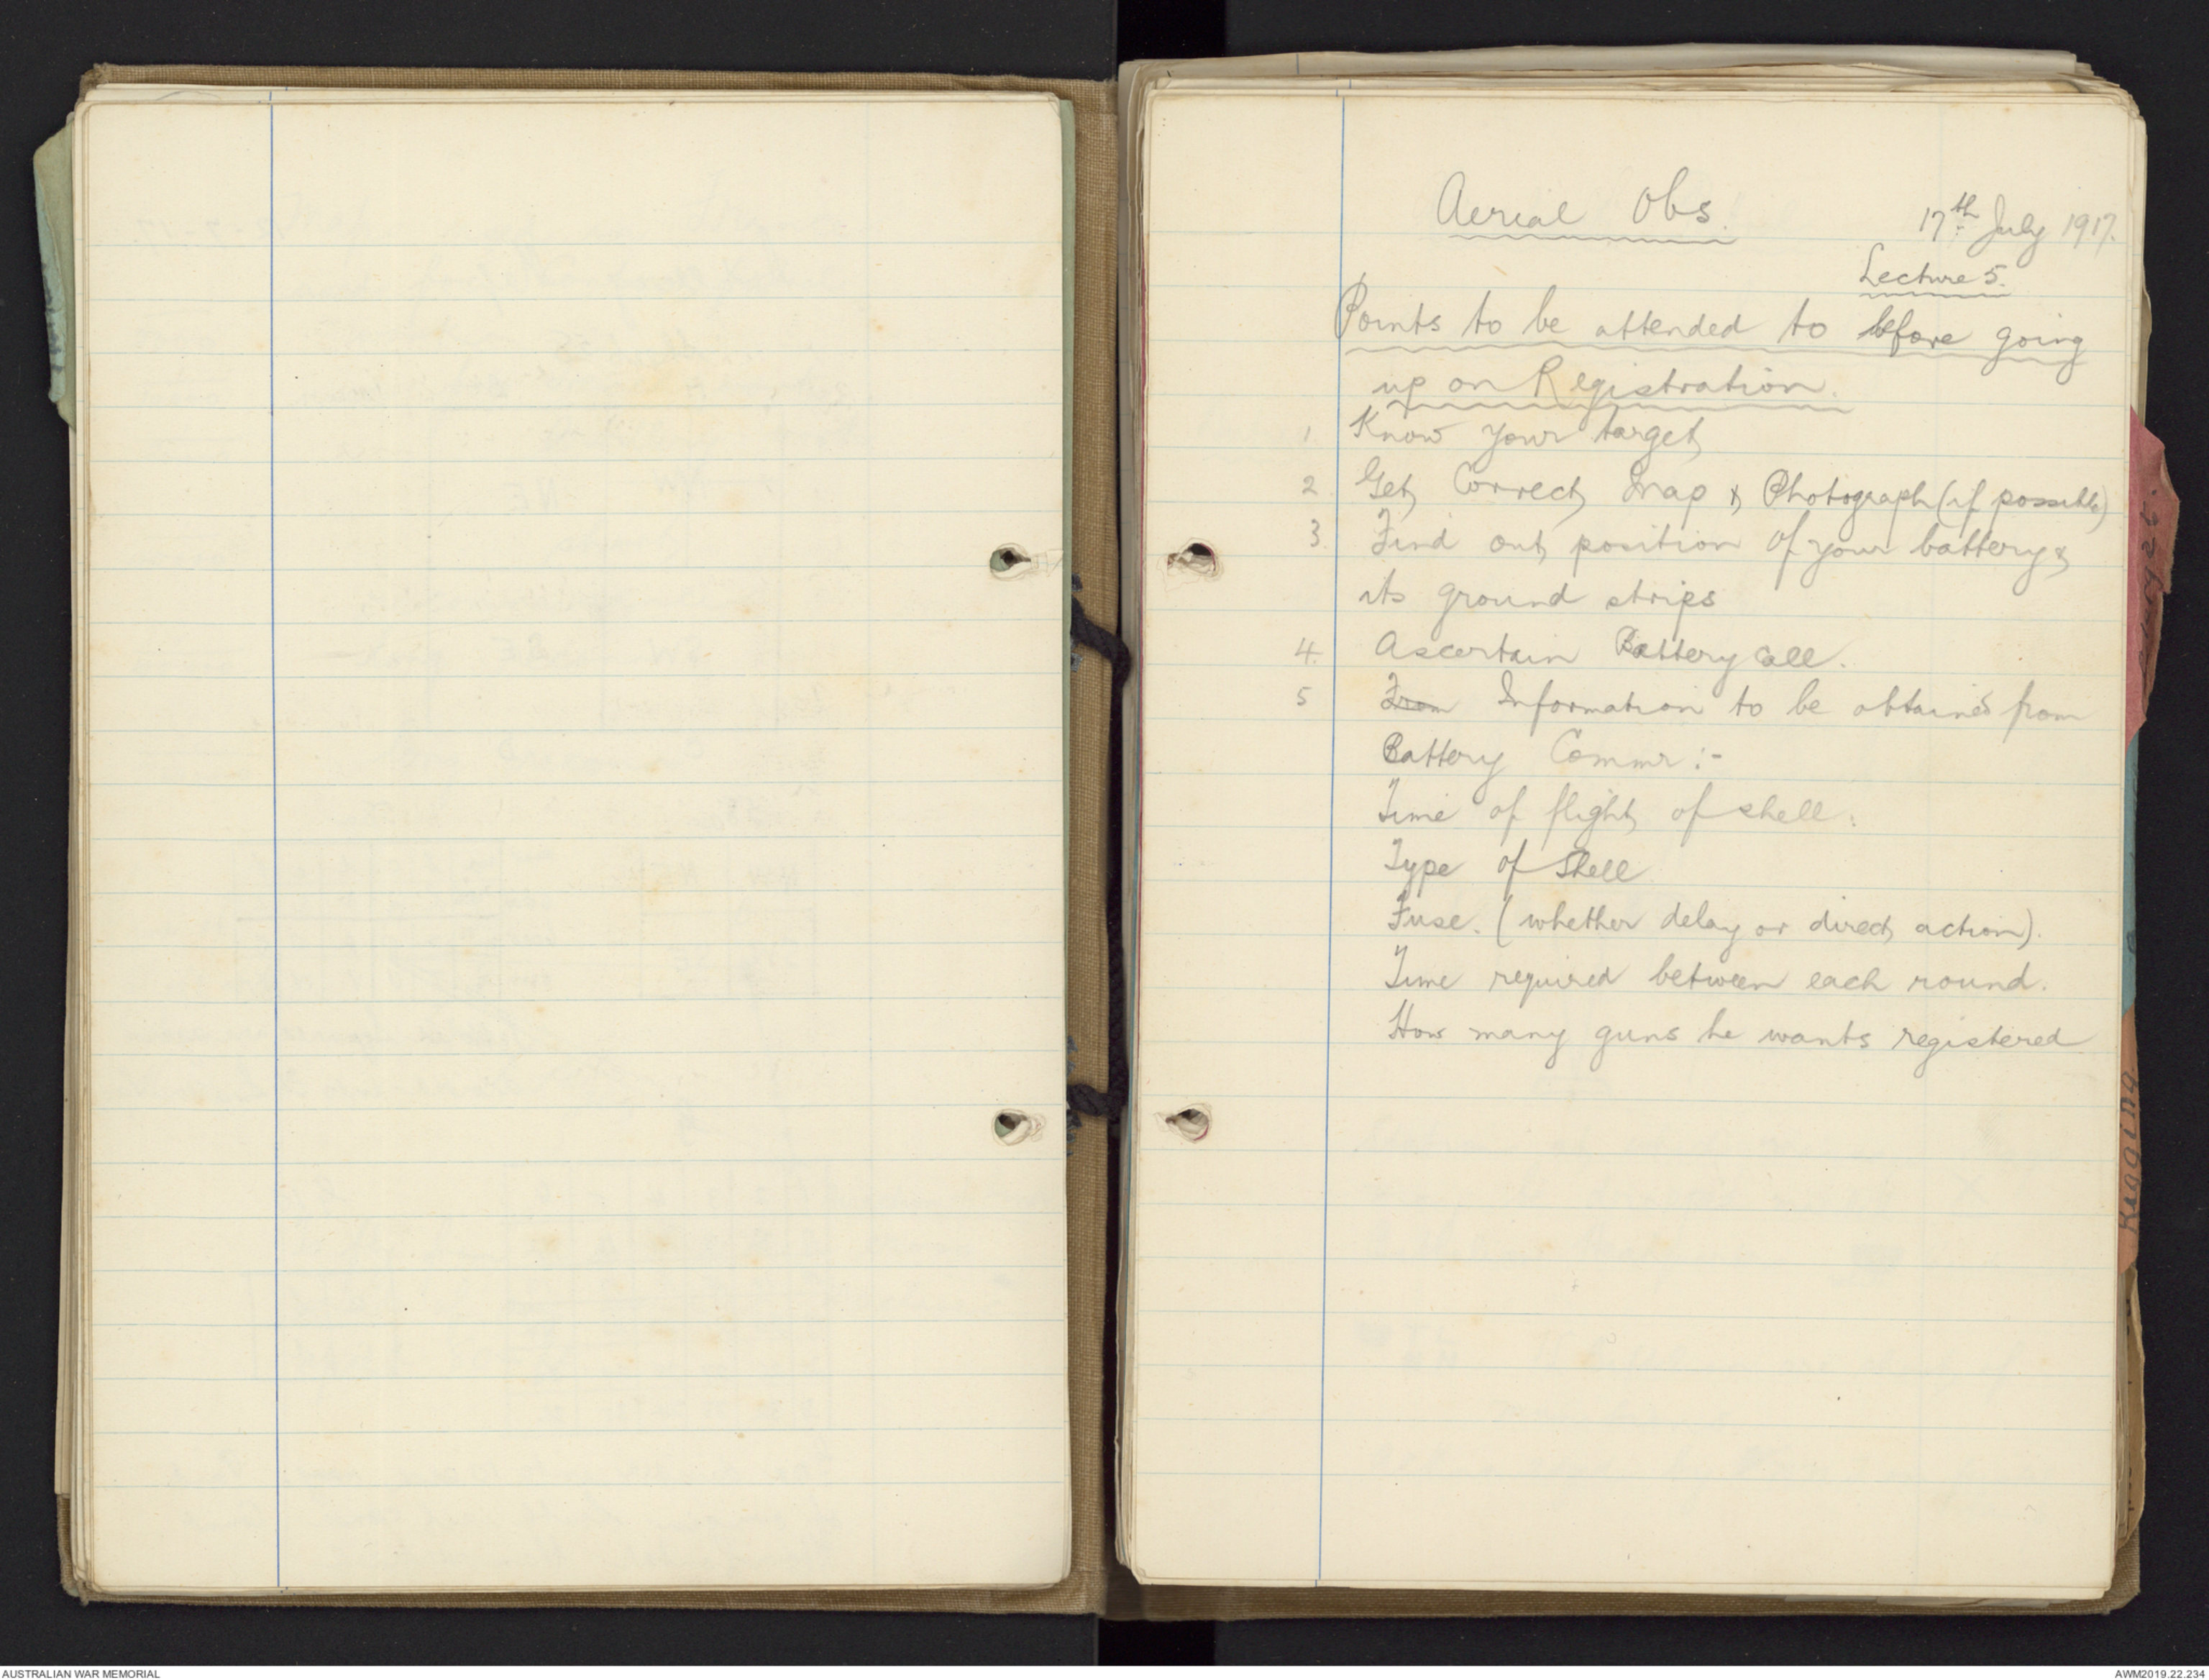 Aerial Obs.
17th July 1917.
Lecture 5.
Points to be attended to before going
up on Registration.
1. Know your target
2. Get Correct Map & Photograph (if possible)
3. Find out position of your battery &
its ground strips
4. Ascertain Battery Call.
5 From Information to be obtained from
Battery Commr :-
Time of flight of shell.
Type of Shell
Fuse. (whether delay or direct action).
Time required between each round.
How many guns he wants registered
Rigging
AUSTRALIAN WAR MEMORIAL
AWM2019.22.234